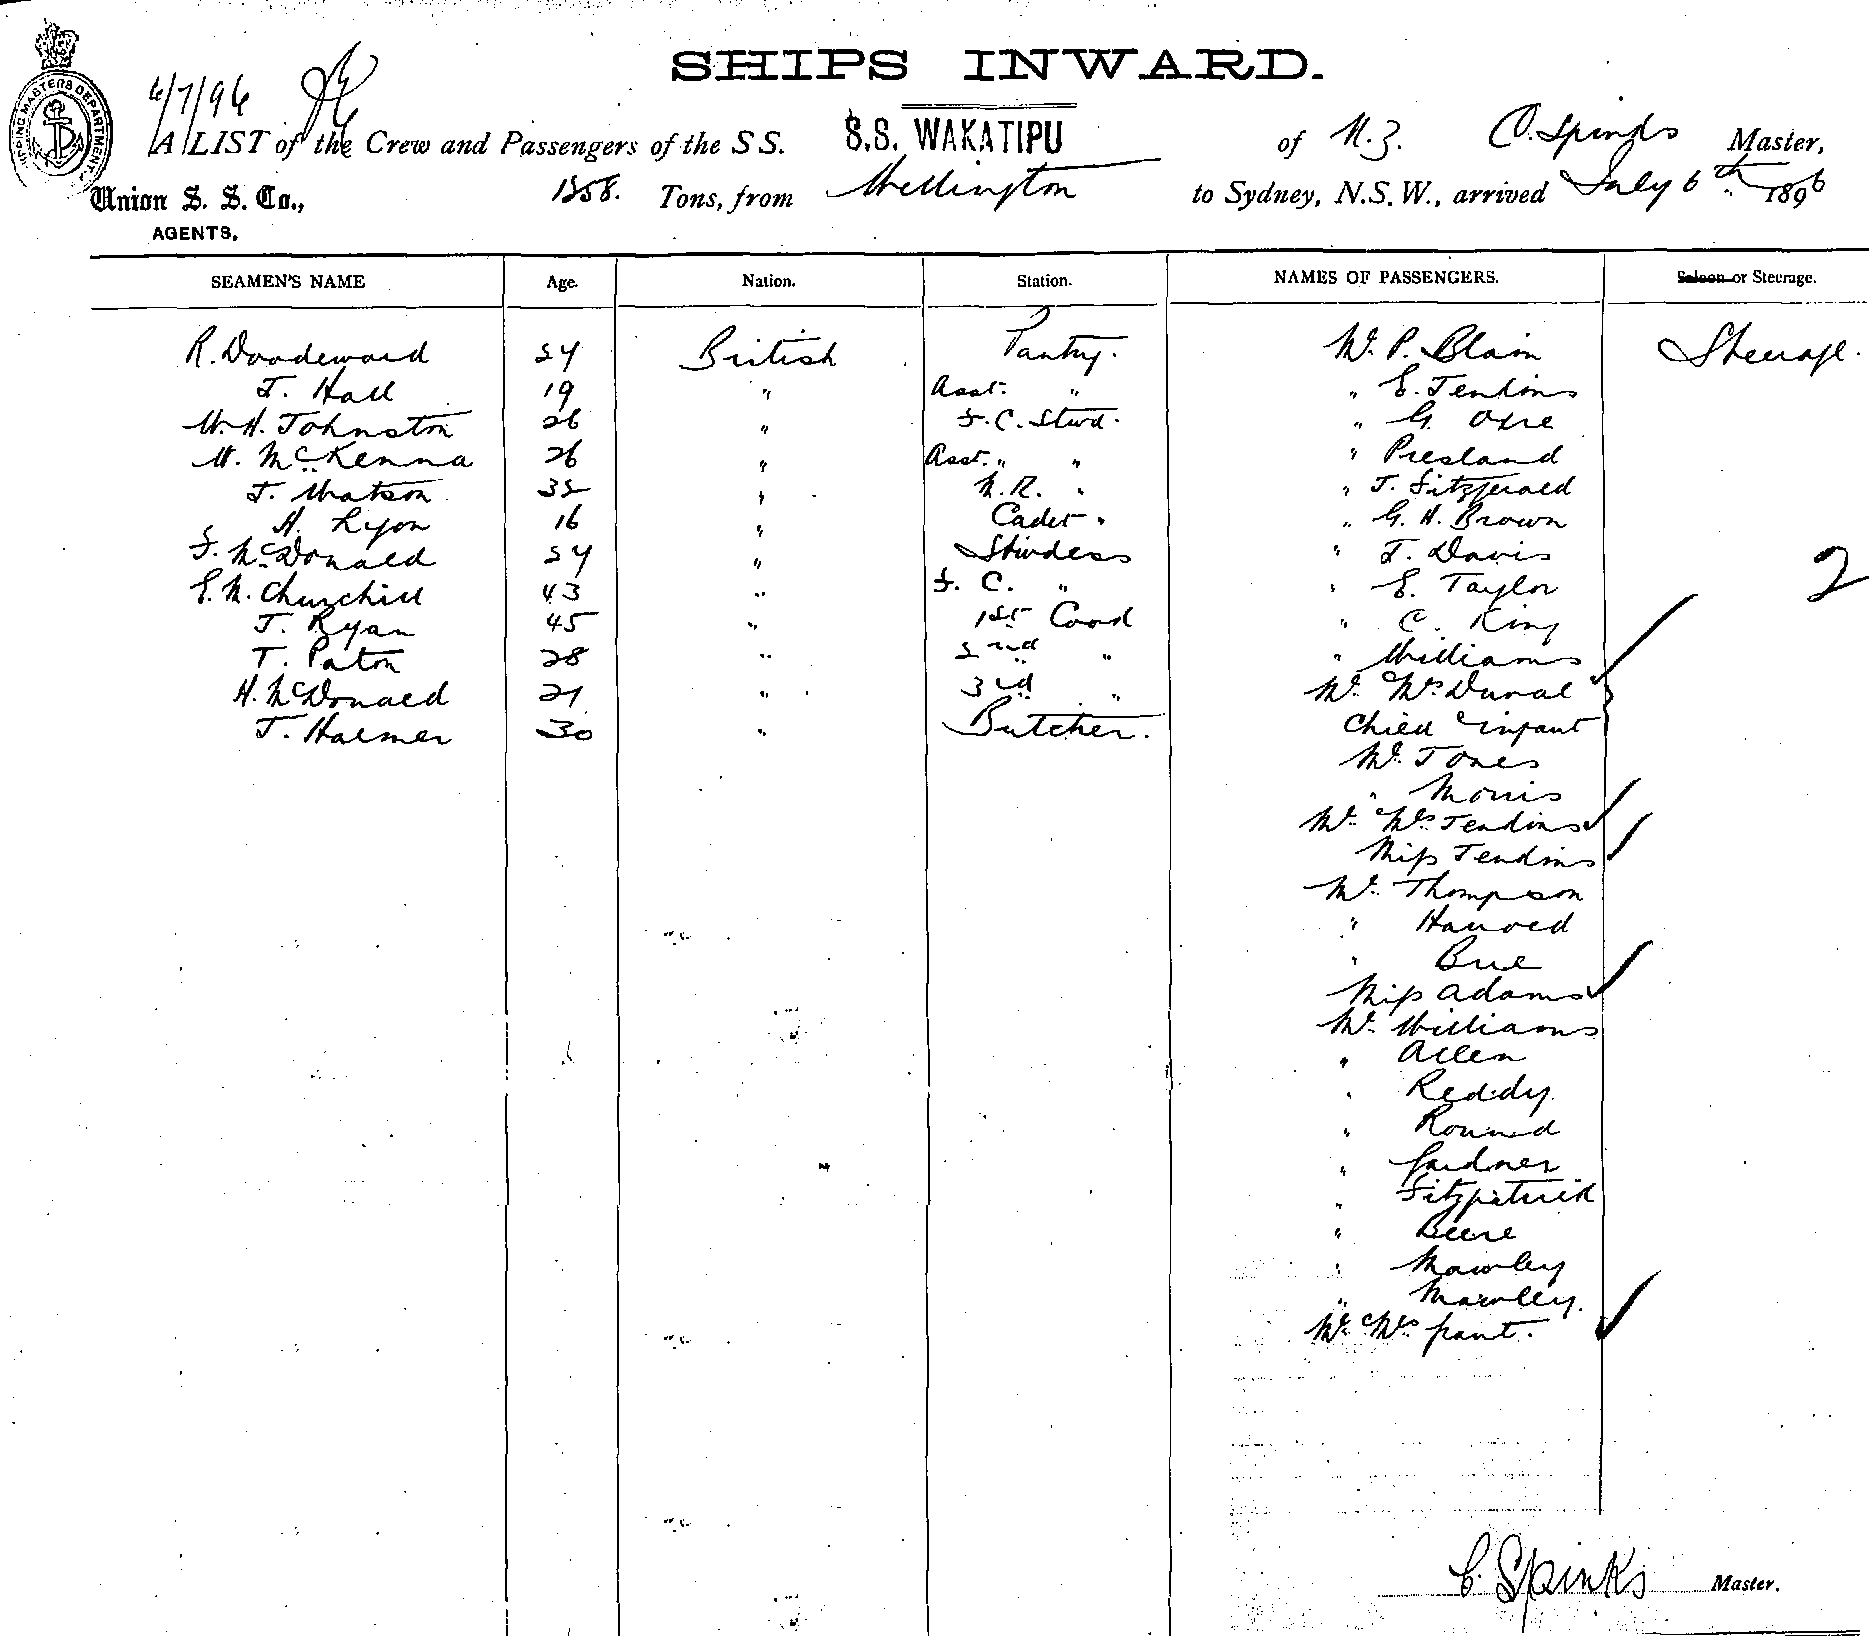 SHIPS INWARD.
SHIPPING MASTERS DEPARTMENT
6/7/96
A LIST of the Crew and Passengers of the SS. S.S. WAKATIPU of N.Z. C. Spinks Master,
Union S. S. Co., 1258. Tons, from Wellington to Sydney, N.S.W., arrived July 6th 1896
AGENTS,
SEAMEN'S NAME Age. Nation. Station. NAMES OF PASSENGERS. Saloon or Steerage.
R. Woodeward 24 British Pantry. Mr. P. Blain Steerage.
J. Hall 19 " Asst. " " E. Jenkins
W. H. Johnston 26 " F. C. Stwd. " G. Oxre
W. McKenna 26 " Asst. " " " Presland
J. Watson 32 " N. R. " " J. Fitzgerald
A. Lyon 16 " Cadet " " G. H. Brown
F. McDonald 24 " Stwdess " J. Davis
2
E. M. Churchill 43 " F. C. " " E. Taylor
J. Ryan 45 " 1st Cook " C. King
T. Paton 28 " 2nd " " Williams
H. McDonald 21 " 3rd " Mr. Mrs Duval
J. Halmer 30 " Butcher. Child & infant
Mr. Jones
" Morris
Mr. & Mrs Jenkins
Miss Jenkins
Mr. Thompson
" Harrold
"
Miss Adams
Mr. Williams
" Allen
" Reddy.
" Round
" Gardner
" Fitzpatrick
" Beere
" Mawley
" Mawley.
Mr. & Mrs Gant.
C. Spinks Master.